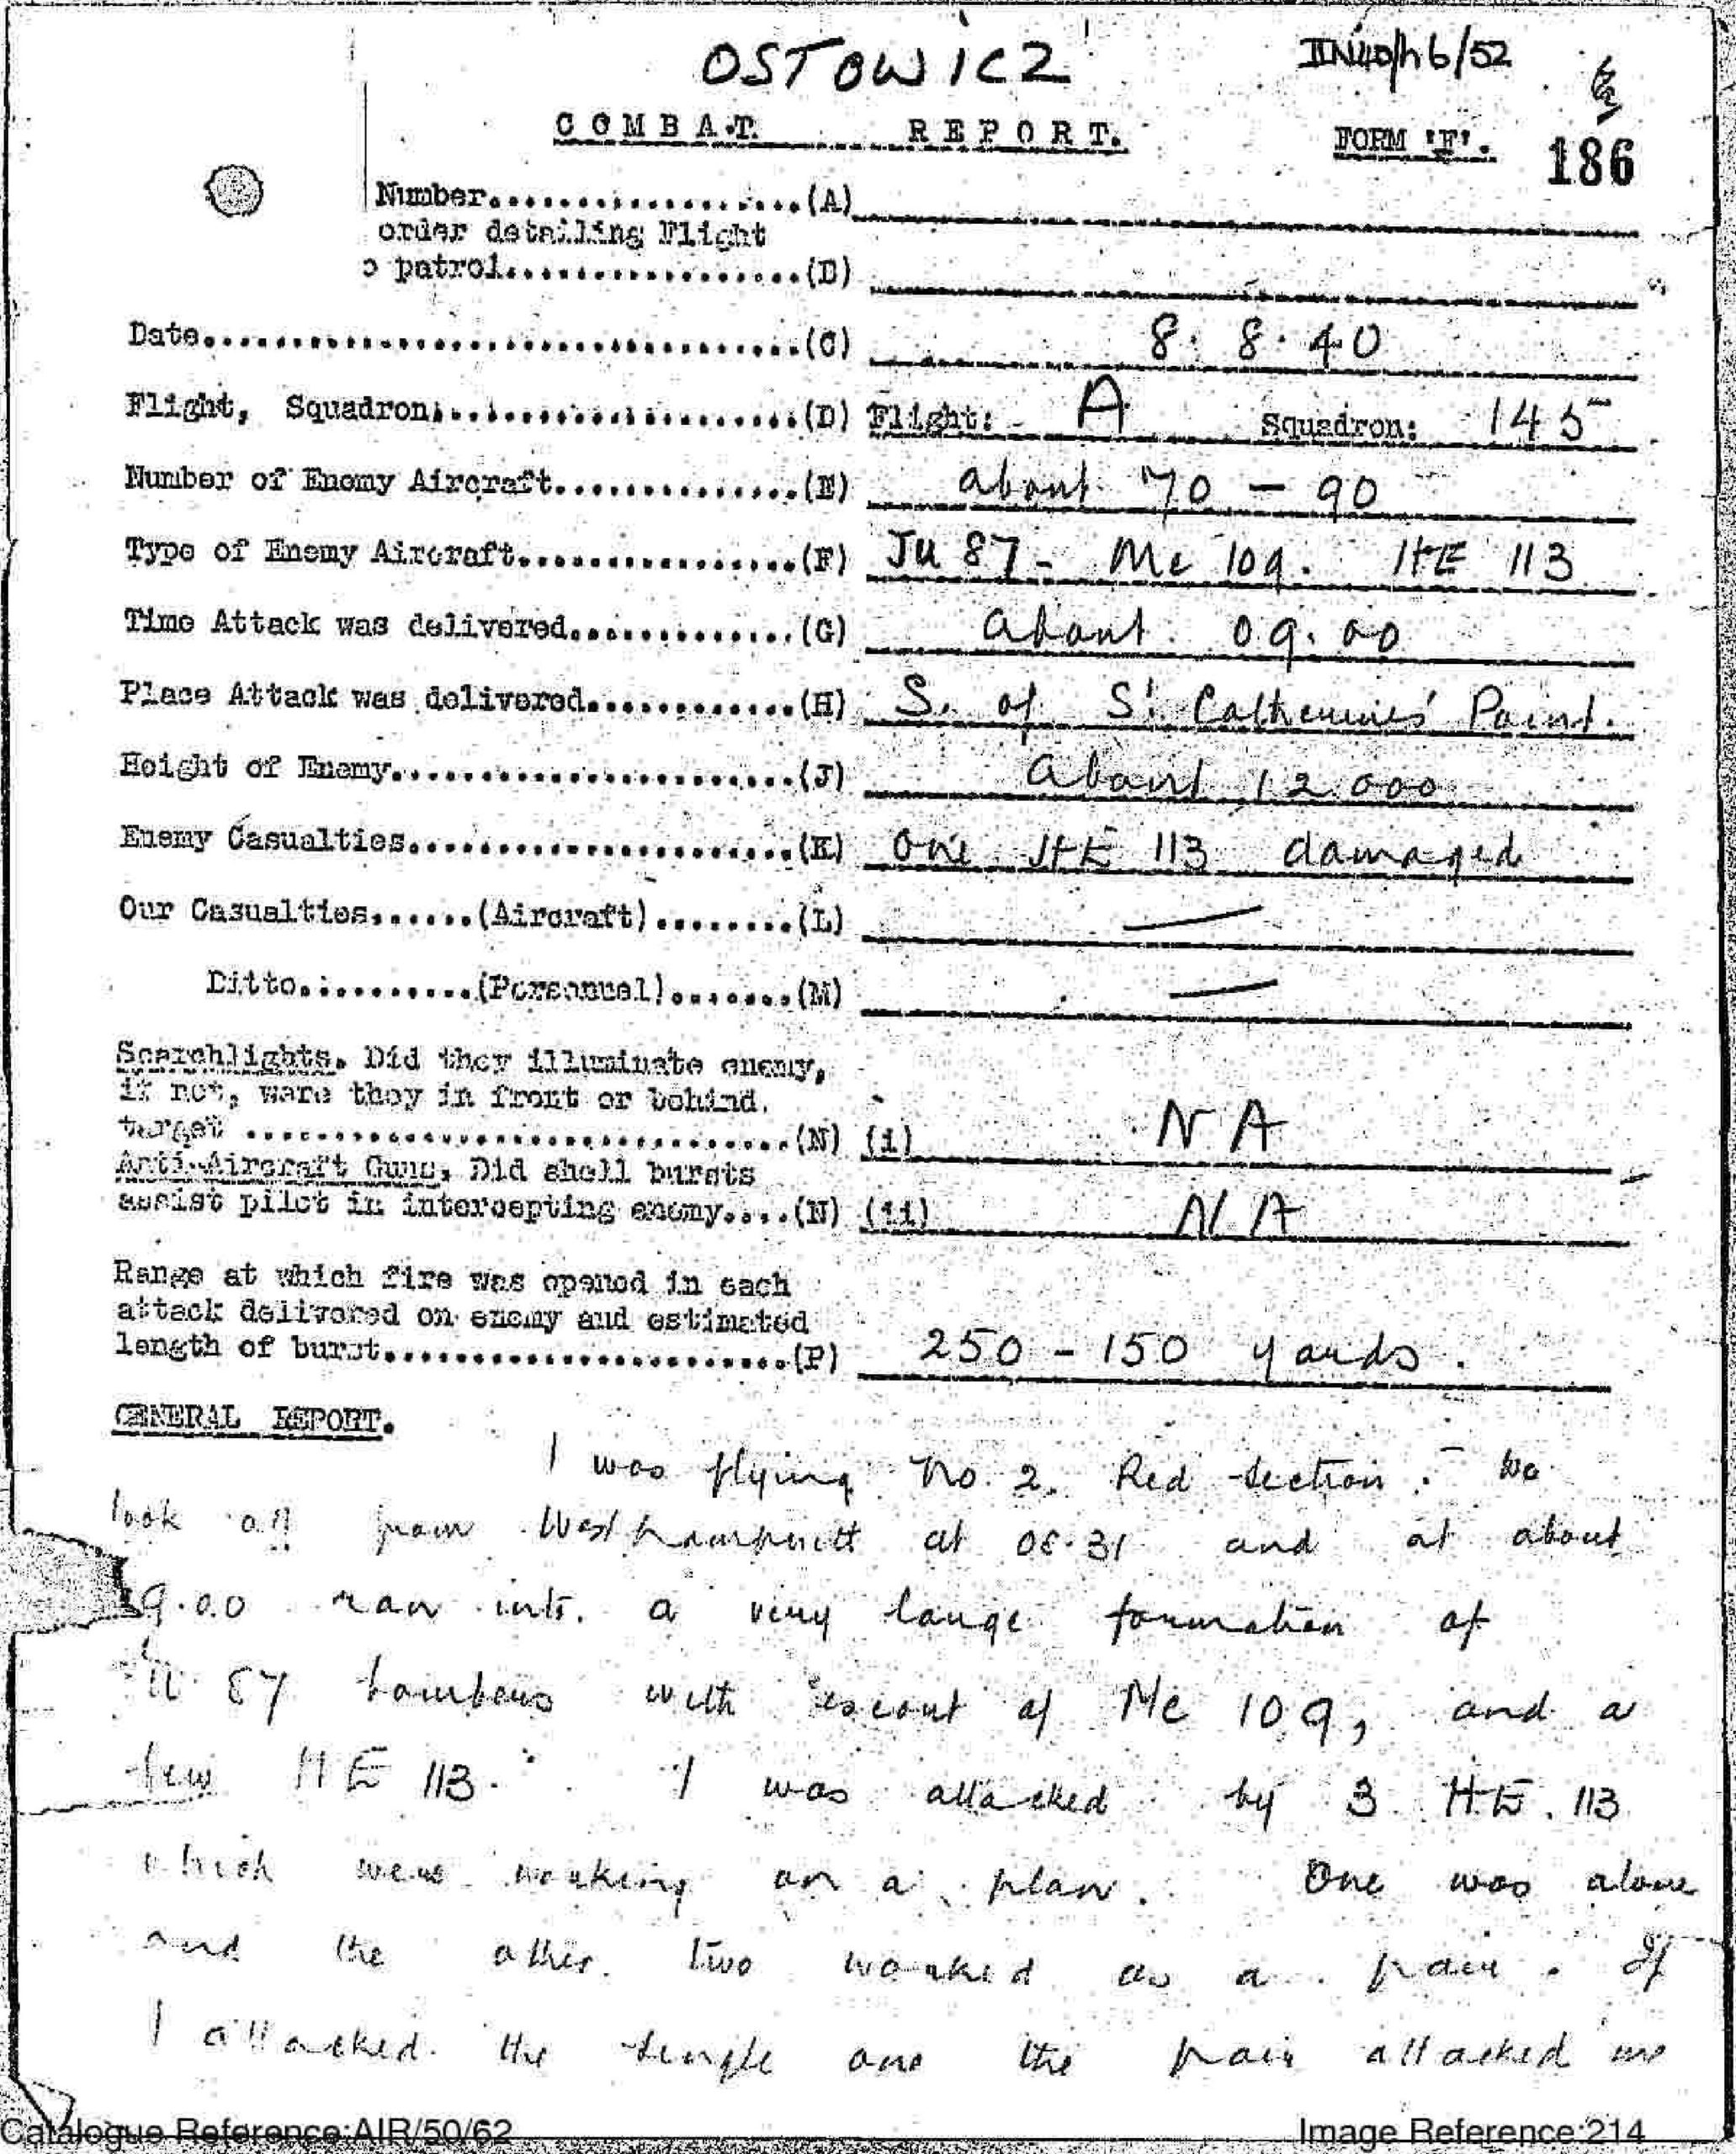 OSTOWICZ
COMBAT REPORT.
FORM 'F'.
186
Number...................(A)
order detailing Flight
o patrol.................(B)
Date..................................(C) 8. 8. 40
Flight, Squadron.....................(D) Flight: A Squadron: 145
Number of Enemy Aircraft..............(E) about 70 - 90
Type of Enemy Aircraft................(F) Ju 87 - Me 109. HE 113
Time Attack was delivered.............(G) about. 09.00
Place Attack was delivered............(H) S. of St Catherines' Point.
Height of Enemy.......................(J) about 12.000
Enemy Casualties......................(K) One HE 113 damaged
Our Casualties......(Aircraft)........(L) —
Ditto...........(Personnel).......(M) —
Searchlights. Did they illuminate enemy,
if not, were they in front or behind.
target ...............................(N) (i) NA
Anti-Aircraft Guns, Did shell bursts
assist pilot in intercepting enemy....(N) (ii) NA
Range at which fire was opened in each
attack delivered on enemy and estimated
length of burst.......................(P) 250 - 150 yards.
GENERAL REPORT.
I was flying No. 2. Red section. We
took off from Westhampnett at 08.31 and at about
9.00 ran into a very large formation of
87 bombers with escort of Me 109, and a
few HE 113. I was attacked by 3 HE. 113
which were working on a plan. One was alone
and the other two worked as a pair. If
I attacked the single one the pair attacked me
Catalogue Reference:AIR/50/62
Image Reference:214